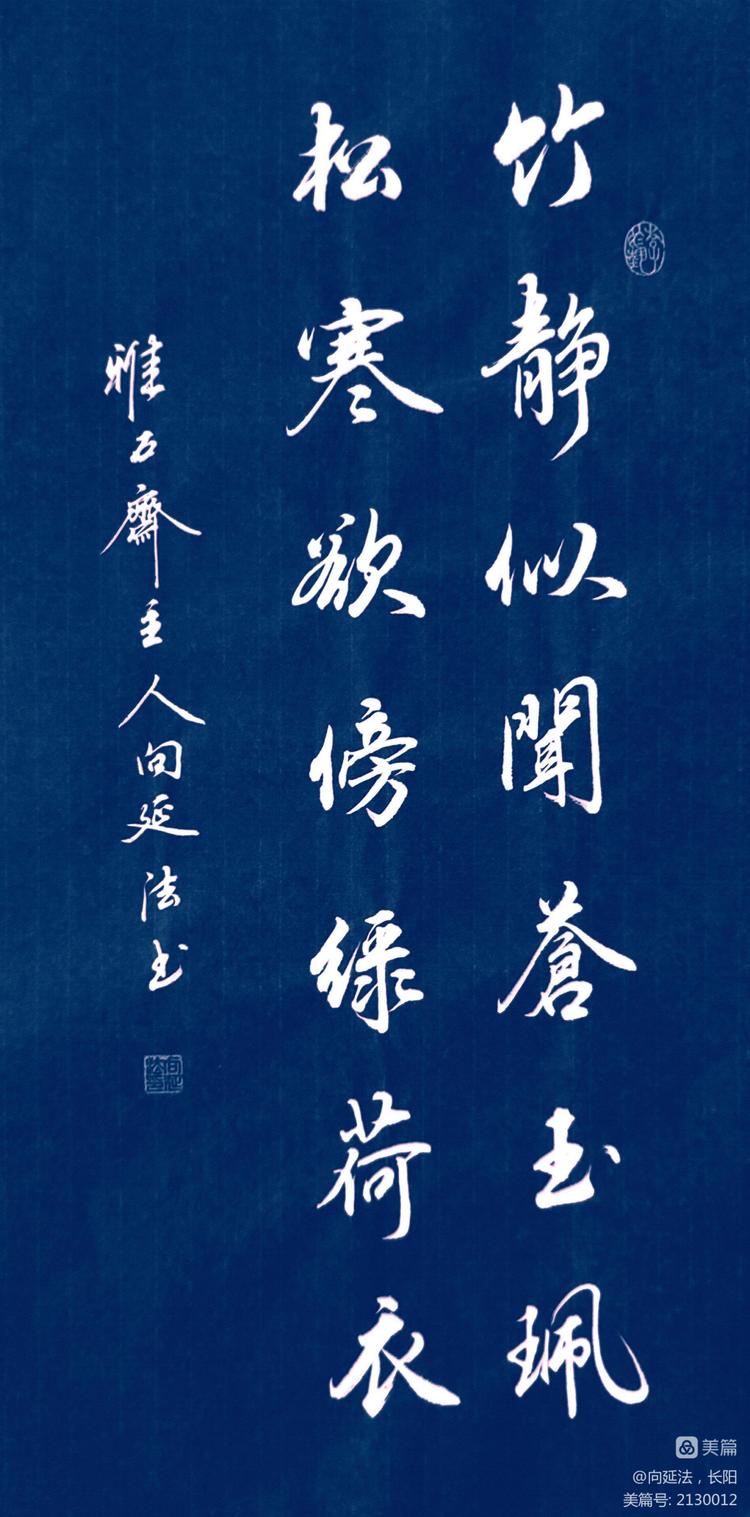 竹靜似聞蒼玉珮
松寒欲傍綠荷衣
雅石齋主人向延法书
美篇
@向延法，长阳
美篇号: 2130012